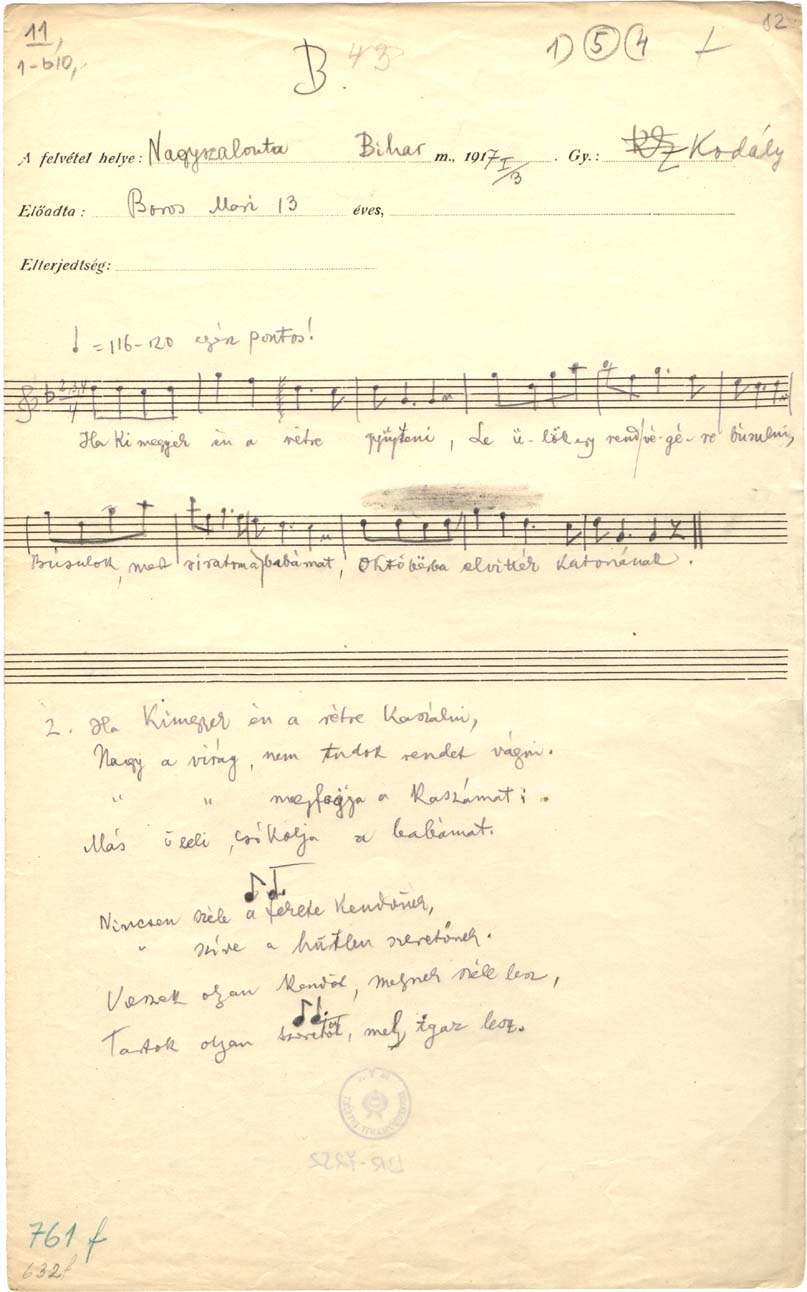 11,
1-b10,
B. 43
1) 5 4
82
A felvétel helye: Nagyszalonta Bihar m., 1917 I/3. Gy.: Kodály
Előadta: Boros Mari 13 éves,
Elterjedtség:
= 116-120 egész pontos!
Ha kimegyek én a rétre gyűjteni, Le ülök egy rend végére búsulni,
Búsulok, med siratom a babámat, Októberba elvitték katonának.
2. Ha kimegyek én a rétre kaszálni,
Nagy a virág, nem tudok rendet vágni.
" " megfogja a kaszámat;
Más öleli, csókolja a babámat.
Nincsen széle a fekete kendőnek,
" szíve a hűtlen szeretőnek.
Veszek olyan kendőt, melynek széle lesz,
Tartok olyan szeretőt, mely igaz lesz.
BR-7252
761 f
632f